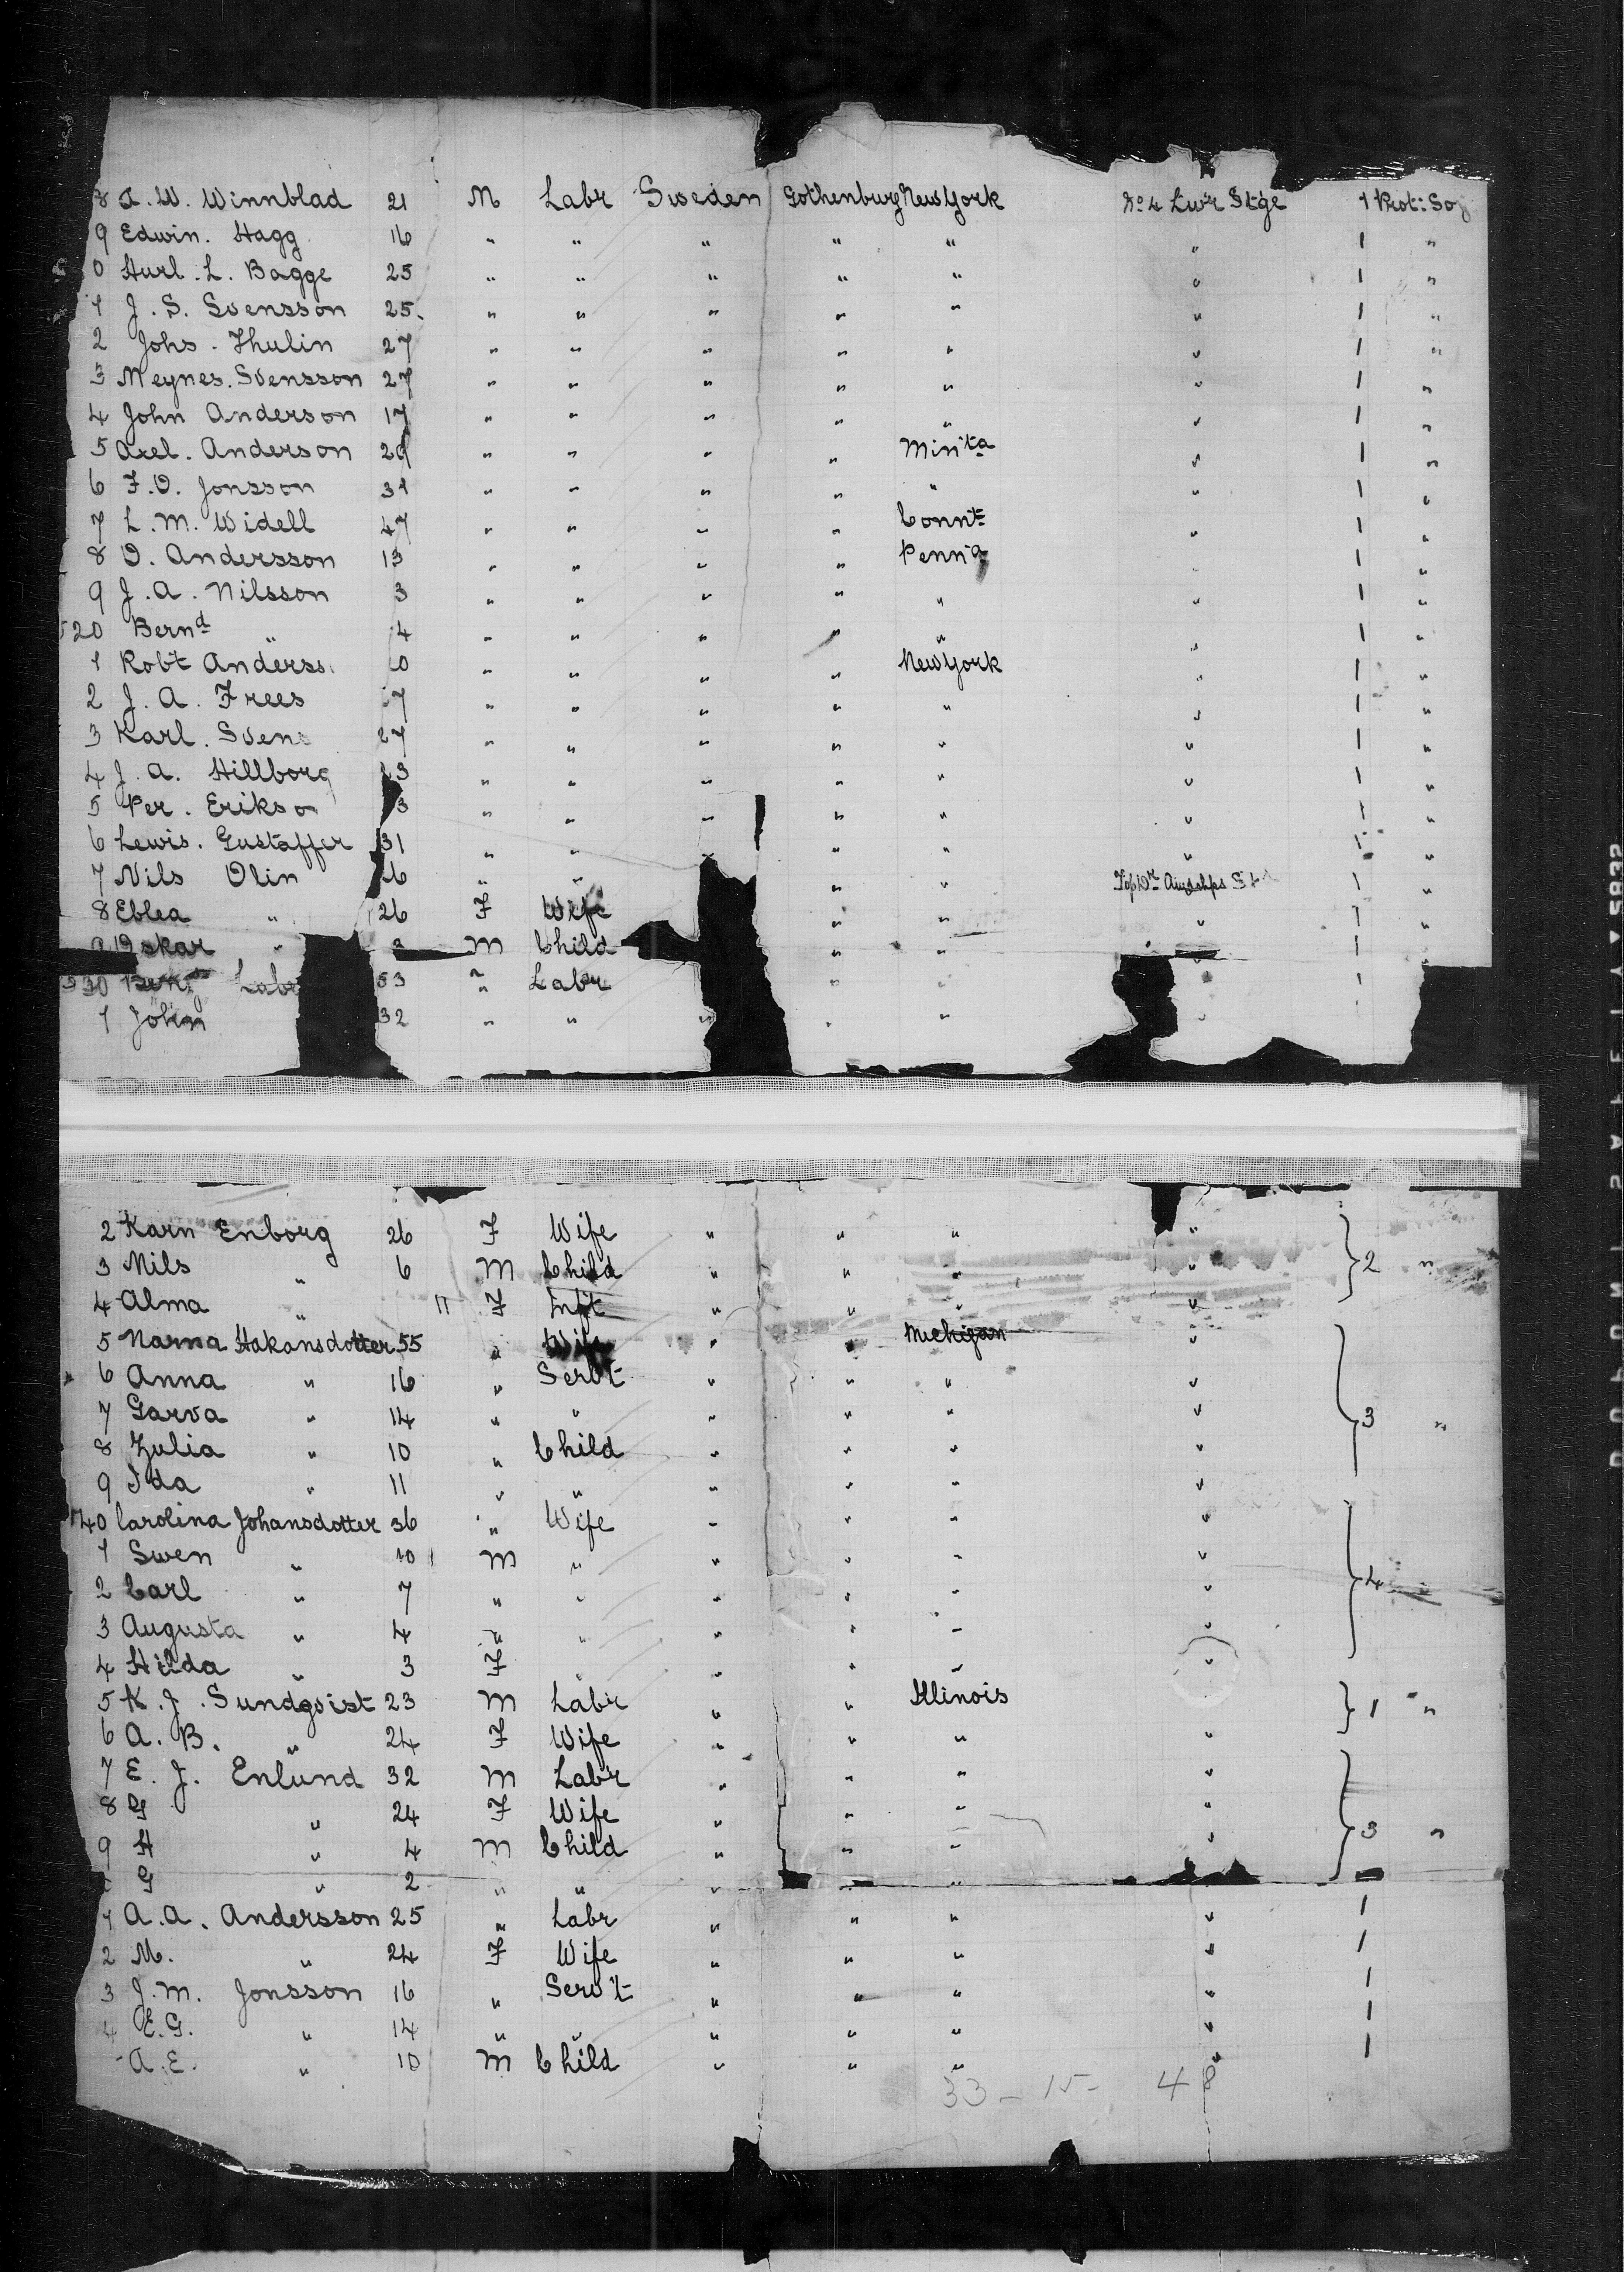 8 A. W. Winnblad 21 M Labr Sweden Gothenburg New York No 4 Lwr Stge 1 Prot: Soj
9 Edwin. Hagg 16 " " " " " " 1 "
0 Hurl. L. Bagge 25 " " " " " " 1 "
1 J. S. Svensson 25. " " " " " " 1 "
2 Johs. Thulin 27 " " " " " " 1 "
3 Meynes. Svensson 27 " " " " " " 1 "
4 John Anderson 17 " " " " " " 1 "
5 Axel. Anderson 29 " " " " Min'ta " 1 "
6 F. O. Jonsson 31 " " " " " " 1 "
7 L. M. Widell 47 " " " " Connt " 1 "
8 O. Andersson 13 " " " " Penn'a " 1 "
9 J. A. Nilsson 3 " " " " " " 1 "
520 Bernd " 4 " " " " " " 1 "
1 Robt Anderss 0 " " " " New York " 1 "
2 J. A. Frees 7 " " " " " " 1 "
3 Karl. Svens 27 " " " " " " 1 "
4 J. A. Hillborg 23 " " " " " " 1 "
5 Per. Erikson 3 " " " " " " 1 "
6 Lewis. Gustaffer 31 " " " " " " 1 "
7 Nils Olin 26 " " " " 1 "
8 Eblea " 26 F Wife " " " 1 "
9 Oskar " M Child " " 1 "
530 Labr 53 " Labr " " " 1
1 John 32 " " " " " "
2 Karn Enborg 26 F Wife " " " " } 2 "
3 Nils " 6 M Child " " " "
4 Alma " 11 F Inft " " " "
5 Narna Hakansdotter 55 " Wife " " Michigan " } 3 "
6 Anna " 16 " Serv't " " " "
7 Garva " 14 " " " " " "
8 Julia " 10 " Child " " " "
9 Ida " 11 " " " " " "
540 Carolina Johansdotter 36 " Wife " " " " } 4
1 Swen " 10 M " " " " "
2 Carl " 7 " " " " " "
3 Augusta " 4 " " " " " "
4 Hilda " 3 F " " " " "
5 K. J. Sundqvist 23 M Labr " " Illinois } 1 "
6 A. B. " 24 F Wife " " " "
7 E. J. Enlund 32 M Labr " " " " } 3 "
8 G " 24 F Wife " " " "
9 H " 4 M Child " " " "
G " 2 " " " "
1 A. A. Andersson 25 " Labr " " " " 1
2 M. " 24 F Wife " " " " 1
3 J. M. Jonsson 16 " Serv't " " " " 1
4 E. G. " 14 " " " " " " 1
A. E. " 10 M Child " " " " 1
33 - 15 - 48